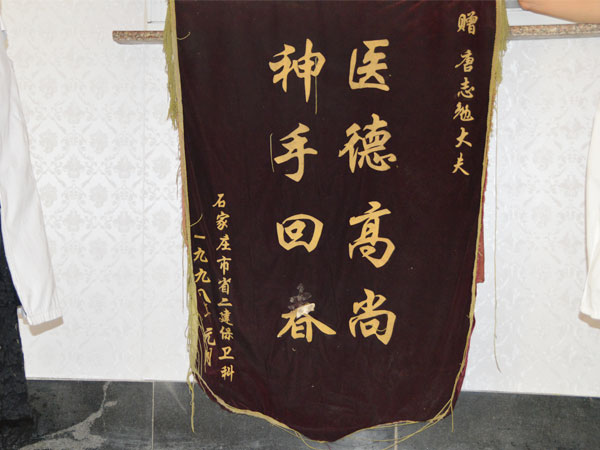 赠 唐志勉大夫
医德高尚
神手回春
石家庄市省二建保卫科
一九九八年元月